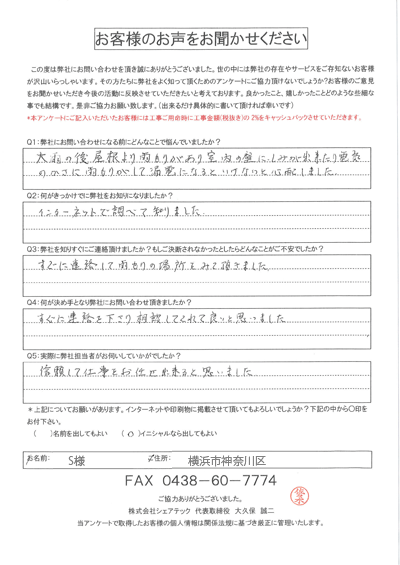 お客様のお声をお聞かせください
この度は弊社にお問い合わせを頂き誠にありがとうございました。世の中には弊社の存在やサービスをご存知ないお客様
が沢山いらっしゃいます。その方たちに弊社をよく知って頂くためのアンケートにご協力頂けないでしょうか?お客様のご意見
をお聞かせいただき今後の活動に反映させていただきたいと考えております。良かったこと、嬉しかったことどのような些細な
事でも結構です。是非ご協力お願い致します。(出来るだけ具体的に書いて頂ければ幸いです)
*本アンケートにご記入いただいたお客様には工事ご用命時に工事金額(税抜き)の 2%をキャッシュバックさせていただきます。
Q1:弊社にお問い合わせになる前にどんなことで悩んでいましたか?
大雨の後屋根より雨もりがあり室内の壁にしみが出来たり電気
のかさに雨もりがして漏電になるといけないと心配しました。
Q2:何がきっかけでに弊社をお知りになりましたか?
インターネットで調べて知りました。
Q3:弊社を知りすぐにご連絡頂けましたか?もしご決断されなかったとしたらどんなことがご不安でしたか?
すぐに連絡して雨もりの場所をみて頂きました。
Q4:何が決め手となり弊社にお問い合わせ頂きましたか?
すぐに連絡を下さり相談してくれて良いと思いました
Q5:実際に弊社担当者がお伺いしていかがでしたか?
信頼して仕事をお任せ出来ると思いました
*上記についてお願いがあります。インターネットや印刷物に掲載させて頂いてもよろしいでしょうか?下記の中から〇印を
お付下さい。
( )名前を出してもよい ( o )イニシャルなら出してもよい
お名前: S様 ご住所: 横浜市神奈川区
FAX 0438-60-7774
ご協力ありがとうございました。
株式会社シェアテック 代表取締役 大久保 誠二
当アンケートで取得したお客様の個人情報は関係法規に基づき厳正に管理いたします。